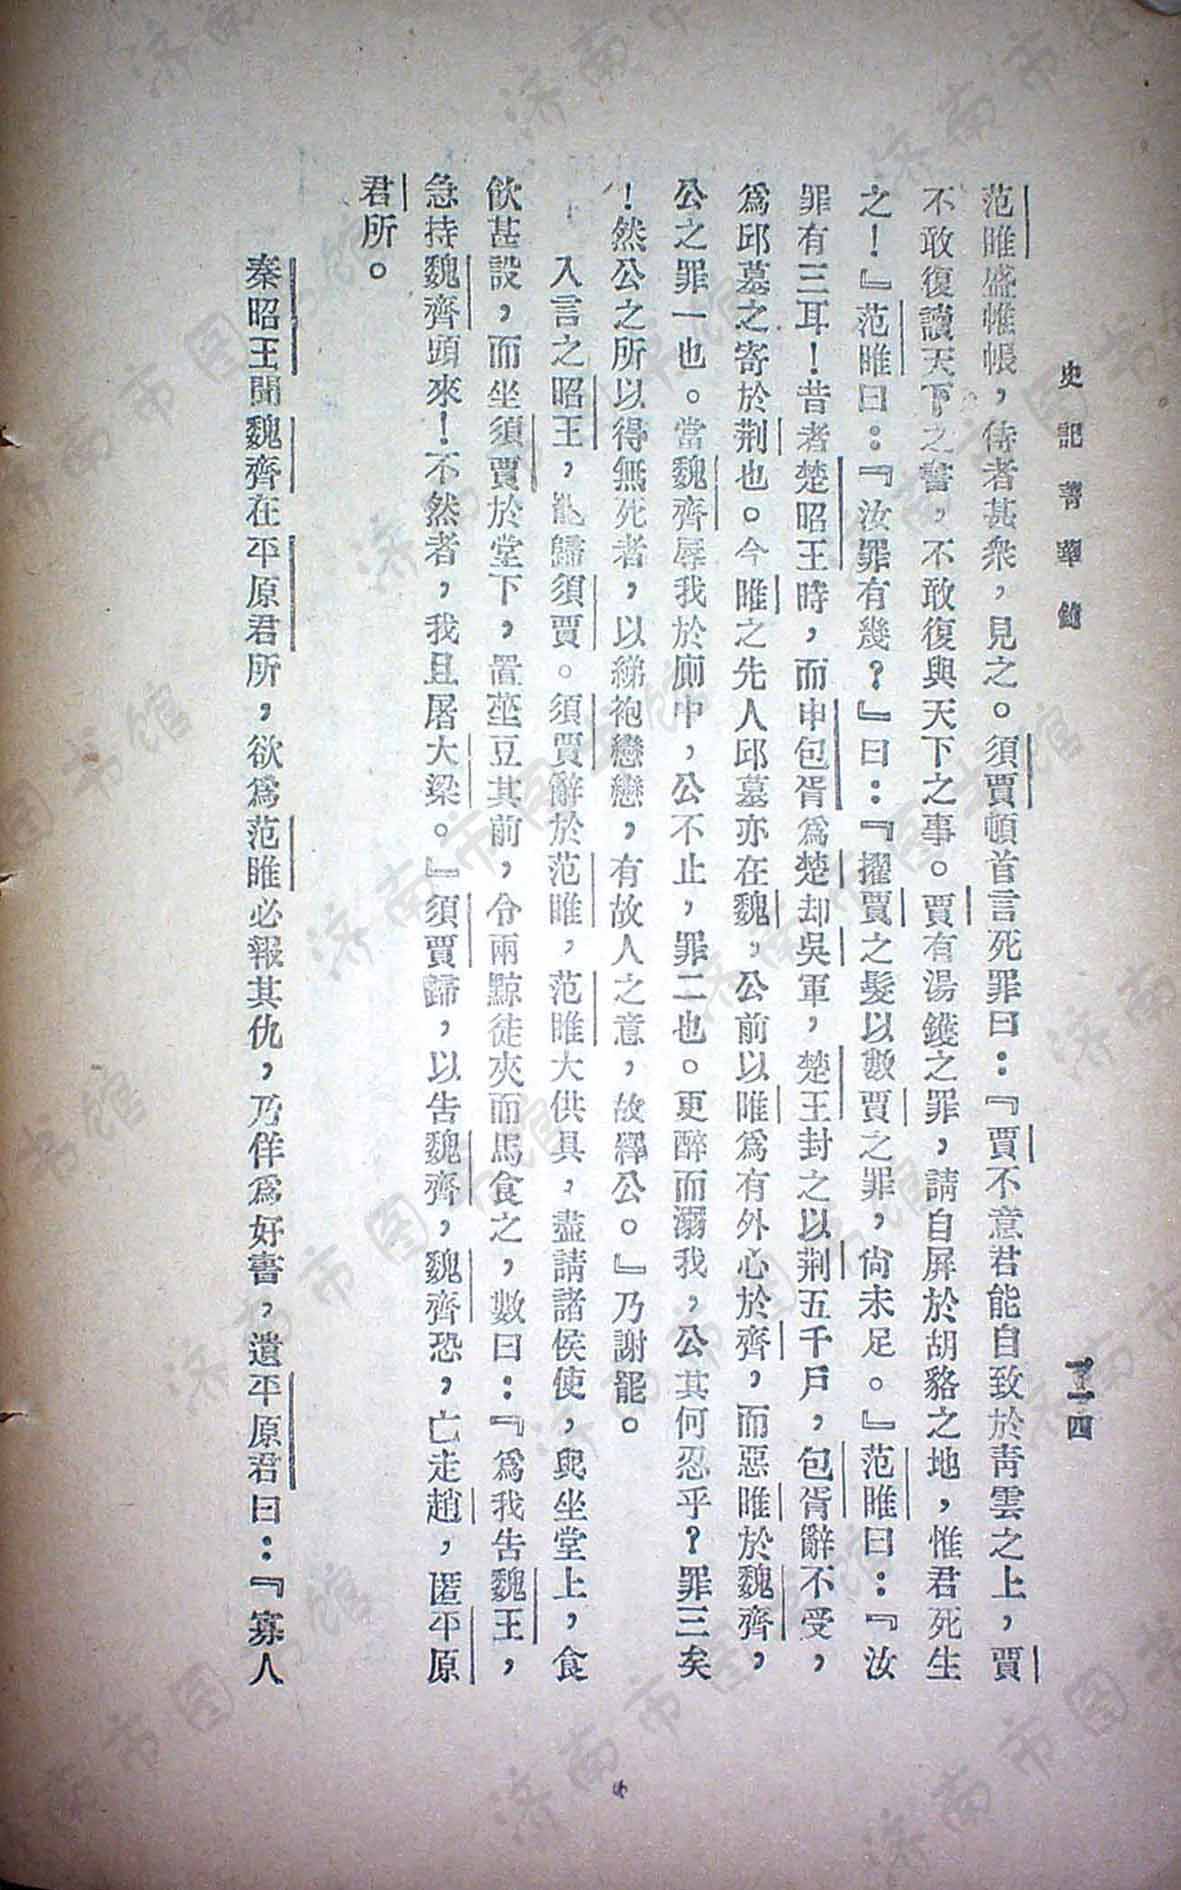 史記菁華錄
一一四
范睢盛帷帳，侍者甚衆，見之。須賈頓首言死罪曰：『賈不意君能自致於靑雲之上，賈
不敢復讀天下之書，不敢復與天下之事。賈有湯鑊之罪，請自屏於胡貉之地，惟君死生
之！』范睢曰：『汝罪有幾？』曰：『擢賈之髮以數賈之罪，尙未足。』范睢曰：『汝
罪有三耳！昔者楚昭王時，而申包胥爲楚却吳軍，楚王封之以荆五千戶，包胥辭不受，
爲邱墓之寄於荆也。今睢之先人邱墓亦在魏，公前以睢爲有外心於齊，而惡睢於魏齊，
公之罪一也。當魏齊辱我於廁中，公不止，罪二也。更醉而溺我，公其何忍乎？罪三矣
！然公之所以得無死者，以綈袍戀戀，有故人之意，故釋公。』乃謝罷。
入言之昭王，罷歸須賈。須賈辭於范睢，范睢大供具，盡請諸侯使，與坐堂上，食
飮甚設，而坐須賈於堂下，置莝豆其前，令兩黥徒夾而馬食之，數曰：『爲我告魏王，
急持魏齊頭來！不然者，我且屠大梁。』須賈歸，以告魏齊，魏齊恐，亡走趙，匿平原
君所。
秦昭王聞魏齊在平原君所，欲爲范睢必報其仇，乃佯爲好書，遺平原君曰：『寡人
济南市图书馆